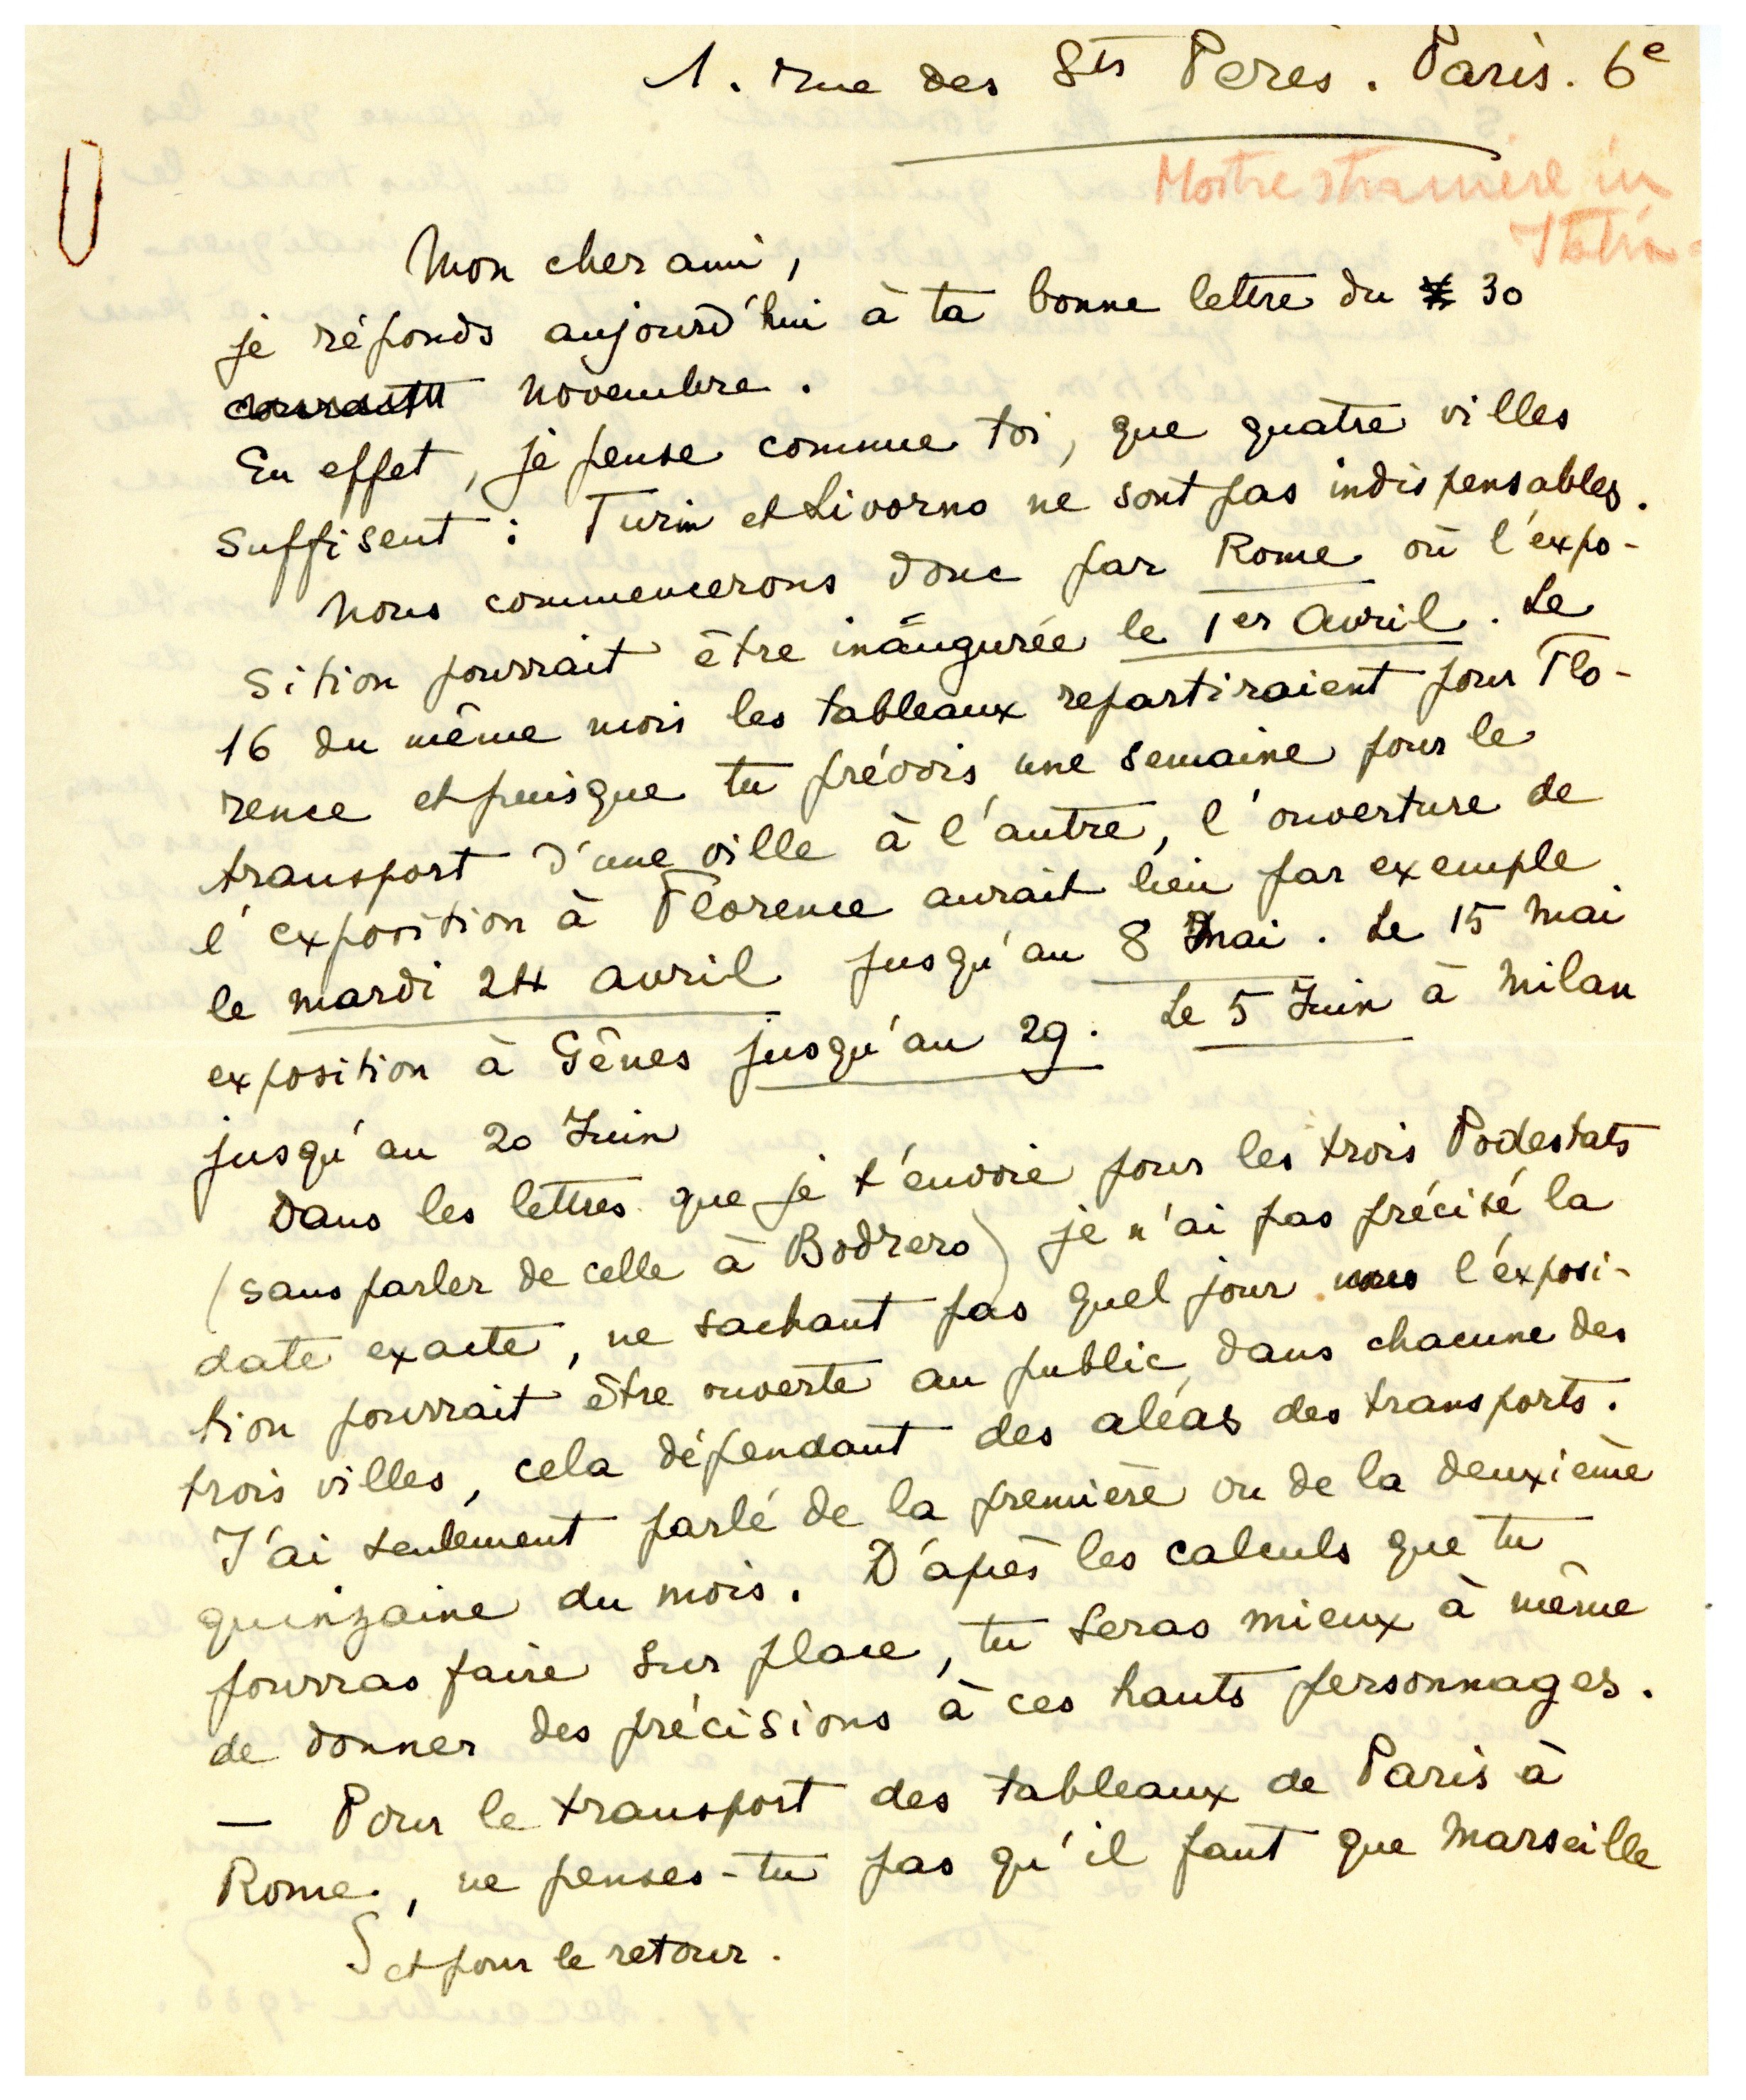 1. rue des Sts Pères. Paris. 6e
Mostre straniere in
Italia
Mon cher ami,
je réponds aujourd'hui à ta bonne lettre du 30
courant novembre.
En effet, je pense comme toi, que quatre villes
suffisent : Turin et Livorno ne sont pas indispensables.
Nous commencerons donc par Rome où l'expo-
sition pourrait être inaugurée le 1er Avril. Le
16 du même mois les tableaux repartiraient pour Flo-
rence et puisque tu prévois une semaine pour le
transport d'une ville à l'autre, l'ouverture de
l'exposition à Florence aurait lieu par exemple
le mardi 24 avril jusqu'au 8 Mai. Le 15 Mai
exposition à Gênes jusqu'au 29. Le 5 Juin à Milan
jusqu'au 20 Juin
Dans les lettres que je t'envoie pour les trois Podestats
(sans parler de celle à Bodrero) je n'ai pas précisé la
date exacte, ne sachant pas quel jour l'exposi-
tion pourrait être ouverte au public dans chacune des
trois villes, cela dépendant des aléas des transports.
J'ai seulement parlé de la première ou de la deuxième
quinzaine du mois. D'après les calculs que tu
pourras faire sur place, tu seras mieux à même
de donner des précisions à ces hauts personnages.
— Pour le transport des tableaux de Paris à
Rome, ne penses-tu pas qu'il faut que Marseille
et pour le retour.